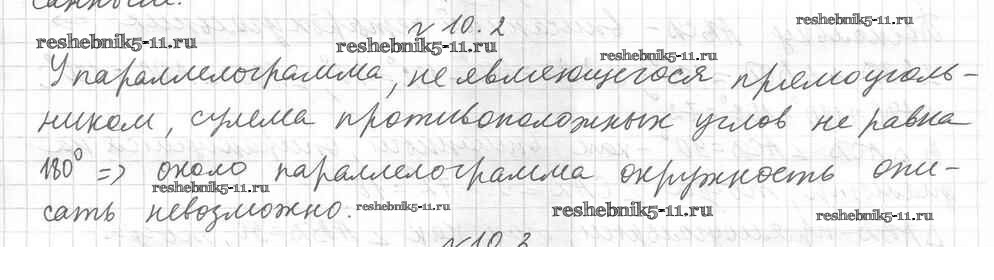 санным.
№ 10.2
reshebnik5-11.ru
reshebnik5-11.ru
reshebnik5-11.ru
reshebnik5-11.ru
У параллелограмма, не являющегося прямоуголь-
ником, сумма противоположных углов не равна
180° => около параллелограмма окружность опи-
reshebnik5-11.ru
сать невозможно.
reshebnik5-11.ru
reshebnik5-11.ru
reshebnik5-11.ru
№ 10.3